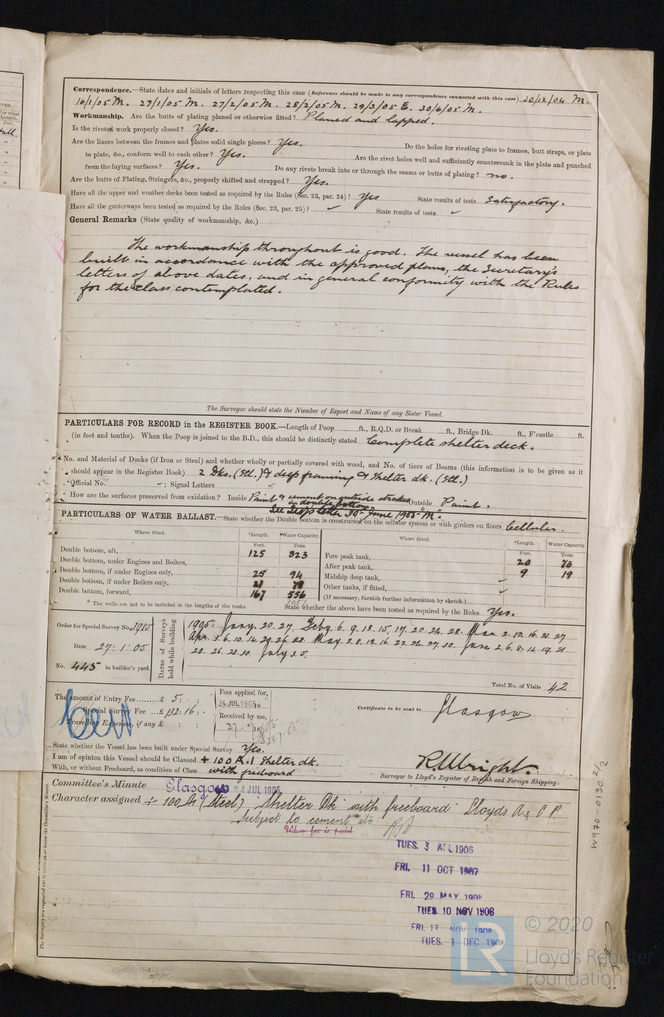 Correspondence.—State dates and initials of letters respecting this case (Reference should be made to any correspondence connected with this case) 30/12/04 M.
16/1/05 M. 27/1/05 M. 27/2/05 M. 28/2/05 M. 29/3/05 E. 30/6/05 M.
Workmanship. Are the butts of plating planed or otherwise fitted? Planed and lapped.
Is the riveted work properly closed? Yes.
Are the liners between the frames and plates solid single pieces? Yes. Do the holes for riveting plate to frames, butt straps, or plate
to plate, &c., conform well to each other? Yes. Are the rivet holes well and sufficiently countersunk in the plate and punched
from the faying surfaces? Yes. Do any rivets break into or through the seams or butts of plating? no.
Are the butts of Plating, Stringers, &c., properly shifted and strapped? Yes.
Have all the upper and weather decks been tested as required by the Rules (Sec. 23, par. 24)? Yes State results of tests Satisfactory.
Have all the gutterways been tested as required by the Rules (Sec. 23, par. 25)? ✓ State results of tests ✓
General Remarks (State quality of workmanship, &c.)
The workmanship throughout is good. The vessel has been
built in accordance with the approved plans, the Secretary's
letters of above dates, and in general conformity with the Rules
for the class contemplated.
The Surveyor should state the Number of Report and Name of any Sister Vessel.
PARTICULARS FOR RECORD in the REGISTER BOOK.—Length of Poop ft., R.Q.D. or Break ft., Bridge Dk. ft., F'castle ft.
(in feet and tenths). When the Poop is joined to the B.D., this should be distinctly stated Complete shelter deck.
No. and Material of Decks (if Iron or Steel) and whether wholly or partially covered with wood, and No. of tiers of Beams (this information is to be given as it
should appear in the Register Book) 2 Dks. (Stl.) & deep framing & Shelter dk. (Stl.)
Official No. ; Signal Letters
How are the surfaces preserved from oxidation? Inside Paint & cement on outside strakes in double bottom Outside Paint.
See Secys letter 30th June 1905 "M"
PARTICULARS OF WATER BALLAST.—State whether the Double bottom is constructed on the cellular system or with girders on floors Cellular.
Where fitted. *Length. *Water Capacity. Where fitted. *Length. Water Capacity.
Feet. Tons. Feet. Tons.
Double bottom, aft, 125 323 Fore peak tank, 20 70
Double bottom, under Engines and Boilers, After peak tank, 9 19
Double bottom, if under Engines only, 25 94 Midship deep tank, ✓
Double bottom, if under Boilers only, 21 78 Other tanks, if fitted, ✓
Double bottom, forward, 167 556 (If necessary, furnish further information by sketch.)
* The wells are not to be included in the lengths of the tanks. 1051 State whether the above have been tested as required by the Rules Yes.
Order for Special Survey No. 3985
Date 27.1.05
No. 445 in builder's yard.
Dates of Surveys held while building
1905: Jany. 20. 27. Feby. 6. 9. 13. 15. 17. 20. 24. 28. Mar. 2. 10. 16. 21. 27
Apr. 3. 6. 10. 14. 24. 26. 28. May. 2. 8. 12. 16. 22. 24. 27. 30. June 2. 6. 8. 14. 19. 21
22. 26. 28. 30. July 3. 5.
Total No. of Visits 42
The amount of Entry Fee £ 5 : :
Special Survey Fee £ 132 : 16 :
Travelling Expenses, if any £ : :
Fees applied for,
24 JUL 1905
Received by me,
Certificate to be sent to Glasgow
State whether the Vessel has been built under Special Survey Yes.
I am of opinion this Vessel should be Classed + 100 A.1 Shelter dk.
With, or without Freeboard, as condition of Class with freeboard
R. Wright.
Surveyor to Lloyd's Register of British and Foreign Shipping.
Committee's Minute Glasgow 24 JUL 1905
Character assigned + 100 A1 (Steel) Shelter Dk with freeboard Lloyds A & C P.
Subject to cement etc.
When fee is paid
TUES. 3 APL 1906
FRI. 11 OCT 1907
FRI. 29 MAY 1908
TUES. 10 NOV 1908
FRI. 13 NOV 1908
TUES. 1 DEC 1908
W970-0130 2/2
© 2020
LR
Lloyd's Register
Foundation